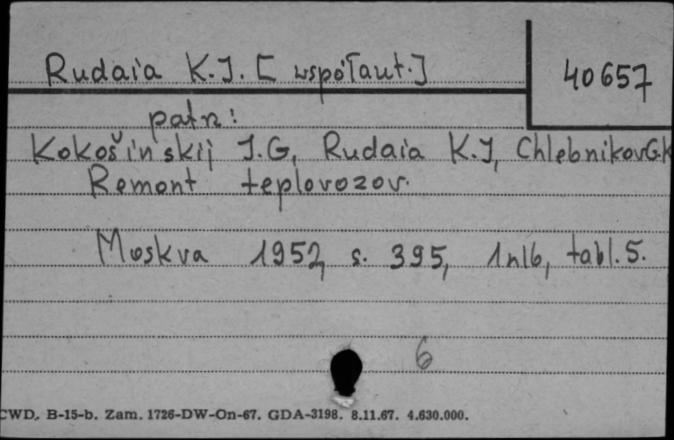 Rudaia K.J. [współaut.]
40657
patrz:
Kokošinskij J.G, Rudaia K.J, Chlebnikov G.K
Remont teplovozov.
Moskva 1952, s. 395, 1nlb, tabl. 5.
6
CWD. B-15-b. Zam. 1726-DW-On-67. GDA-3198. 8.11.67. 4.630.000.